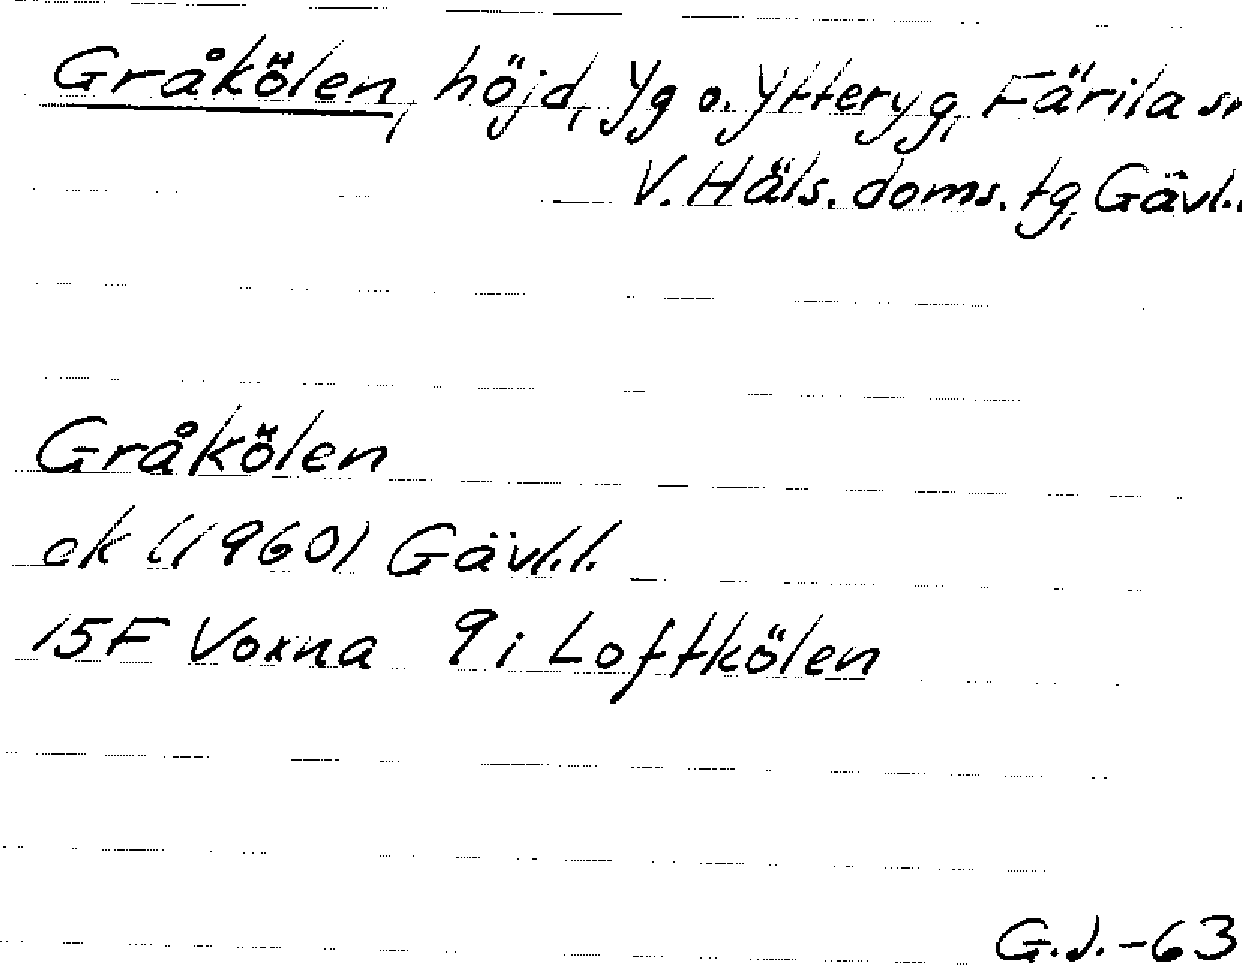 Gråkölen, höjd, Yg o. Ytteryg, Färila sn
V. Häls. doms. tg, Gävl.
Gråkölen
ek (1960) Gävl.l.
15F Voxna 9i Loftkölen
G.J.-63